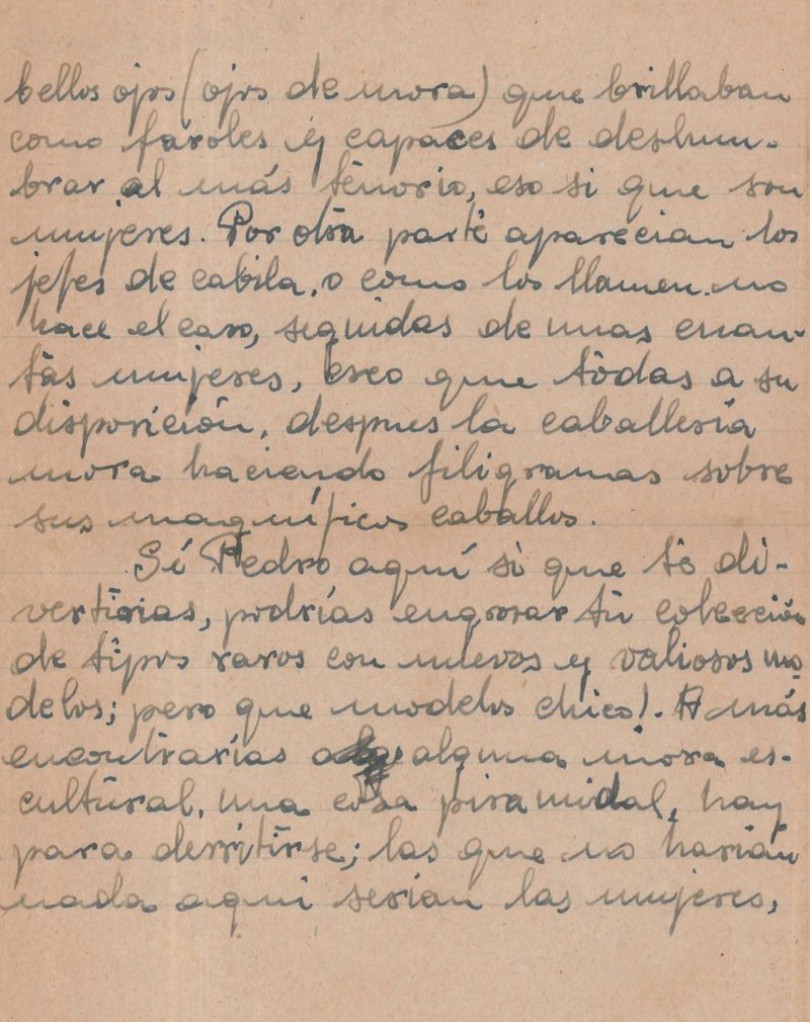 bellos ojos (ojos de mora) que brillaban
como faroles y capaces de deslum-
brar al más tenorio, eso si que son
mujeres. Por otra parte aparecian los
jefes de cabila, o como los llamen no
hace el caso, seguidas de unas cuan-
tas mujeres, creo que todas a su
disposición, despues la caballería
mora haciendo filigramas sobre
sus magníficos caballos.
Sí Pedro aquí si que te di-
vertirias, podrías engrosar tu colección
de tipos raros con nuevos y valiosos mo
delos; pero que modelos chico!. A más
encontrarías alguna mora es-
cultural, una cosa piramidal, hay
para derritirse; las que no harian
nada aqui serian las mujeres,